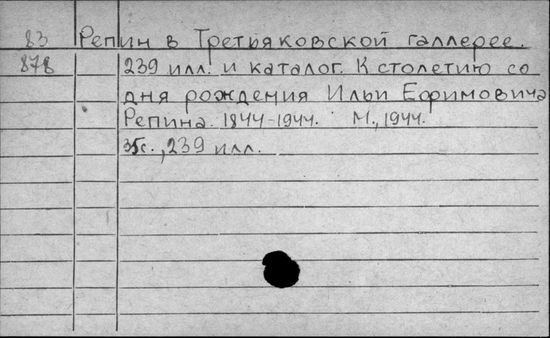 83 Репин в Третьяковской галлерее.
878 239 илл. и каталог. К столетию со
дня рождения Ильи Ефимовича
Репина. 1844-1944. М., 1944.
35с., 239 илл.